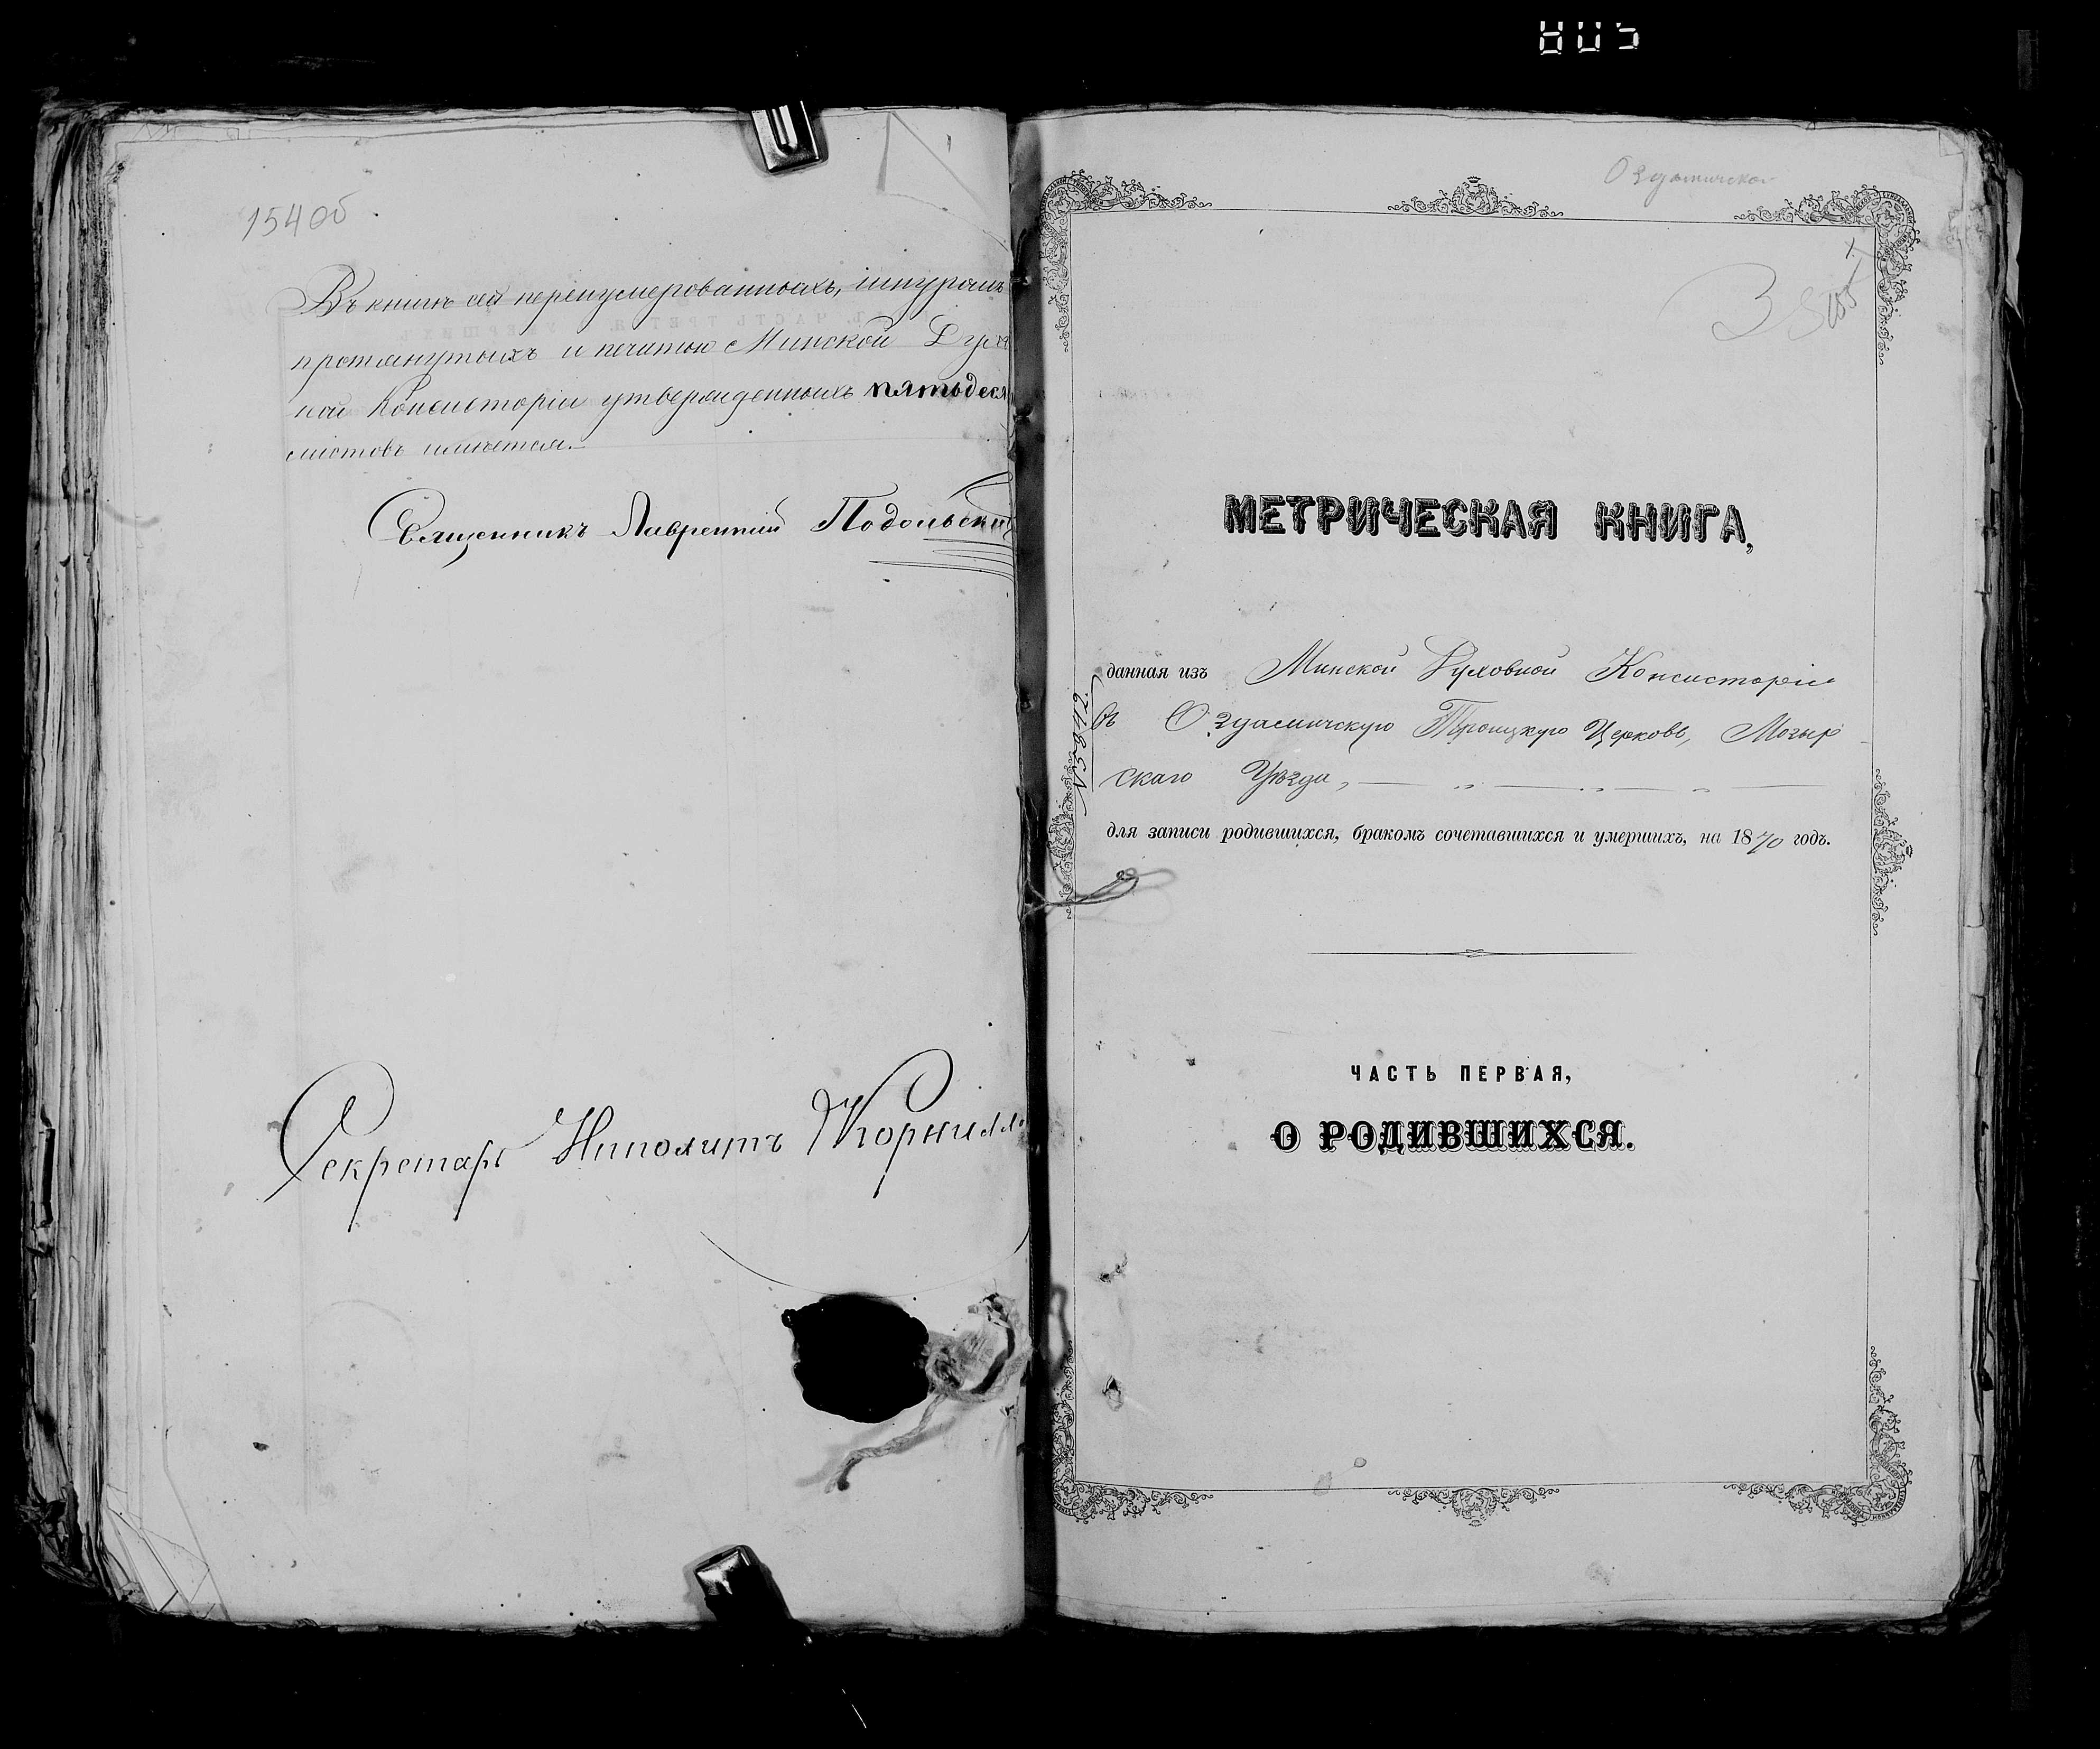 154об
Въ книгѣ сей перенумерованныхъ, шнуромъ
протянутыхъ и печатью Минской Духо
ной Консисторіи утвержденныхъ пятьдеся
листовъ имѣется.
Священникъ Лаврентій Подольскій
Секретарь Иполитъ Корнилло
Оздамическая
3
МЕТРИЧЕСКАЯ КНИГА,
данная изъ Минской Духовной Консисторіи
въ Оздамичскую Троицкую Церковь, Мозыр
скаго Уѣзда,
№ 3842.
для записи родившихся, бракомъ сочетавшихся и умершихъ, на 1870 годъ.
ЧАСТЬ ПЕРВАЯ,
О РОДИВШИХСЯ.